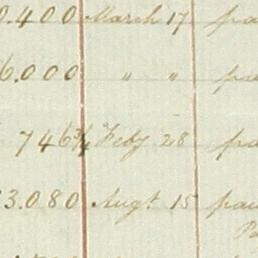 0.400 March 17 pa
6.000 " " pa
746¾ Feby 28 pa
3.080 Augt. 15 pai